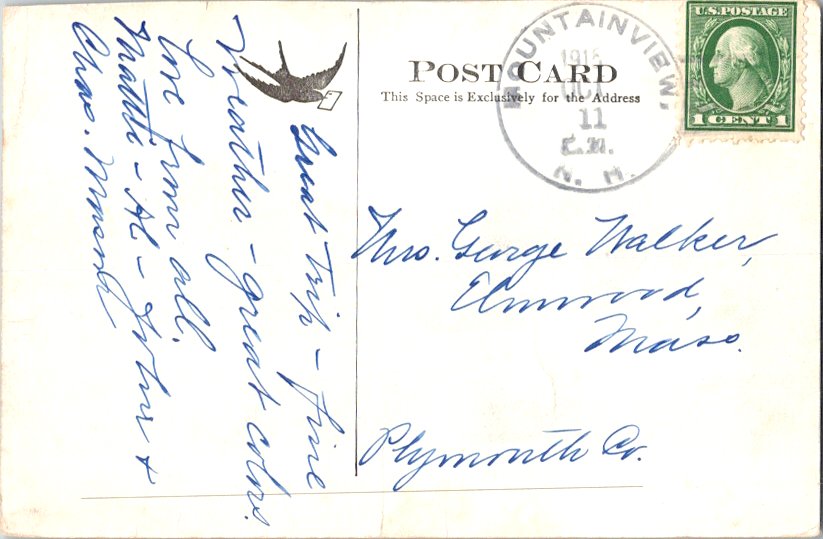 POST CARD
This Space is Exclusively for the Address
MOUNTAINVIEW,
OCT
11
N. H.
U.S. POSTAGE
1 CENT 1
Great trip - fine
weather - great colors.
Love from all.
Mattie - Al - John &
Chas.
Mrs. George Walker,
Elmwood,
Mass.
Plymouth Co.